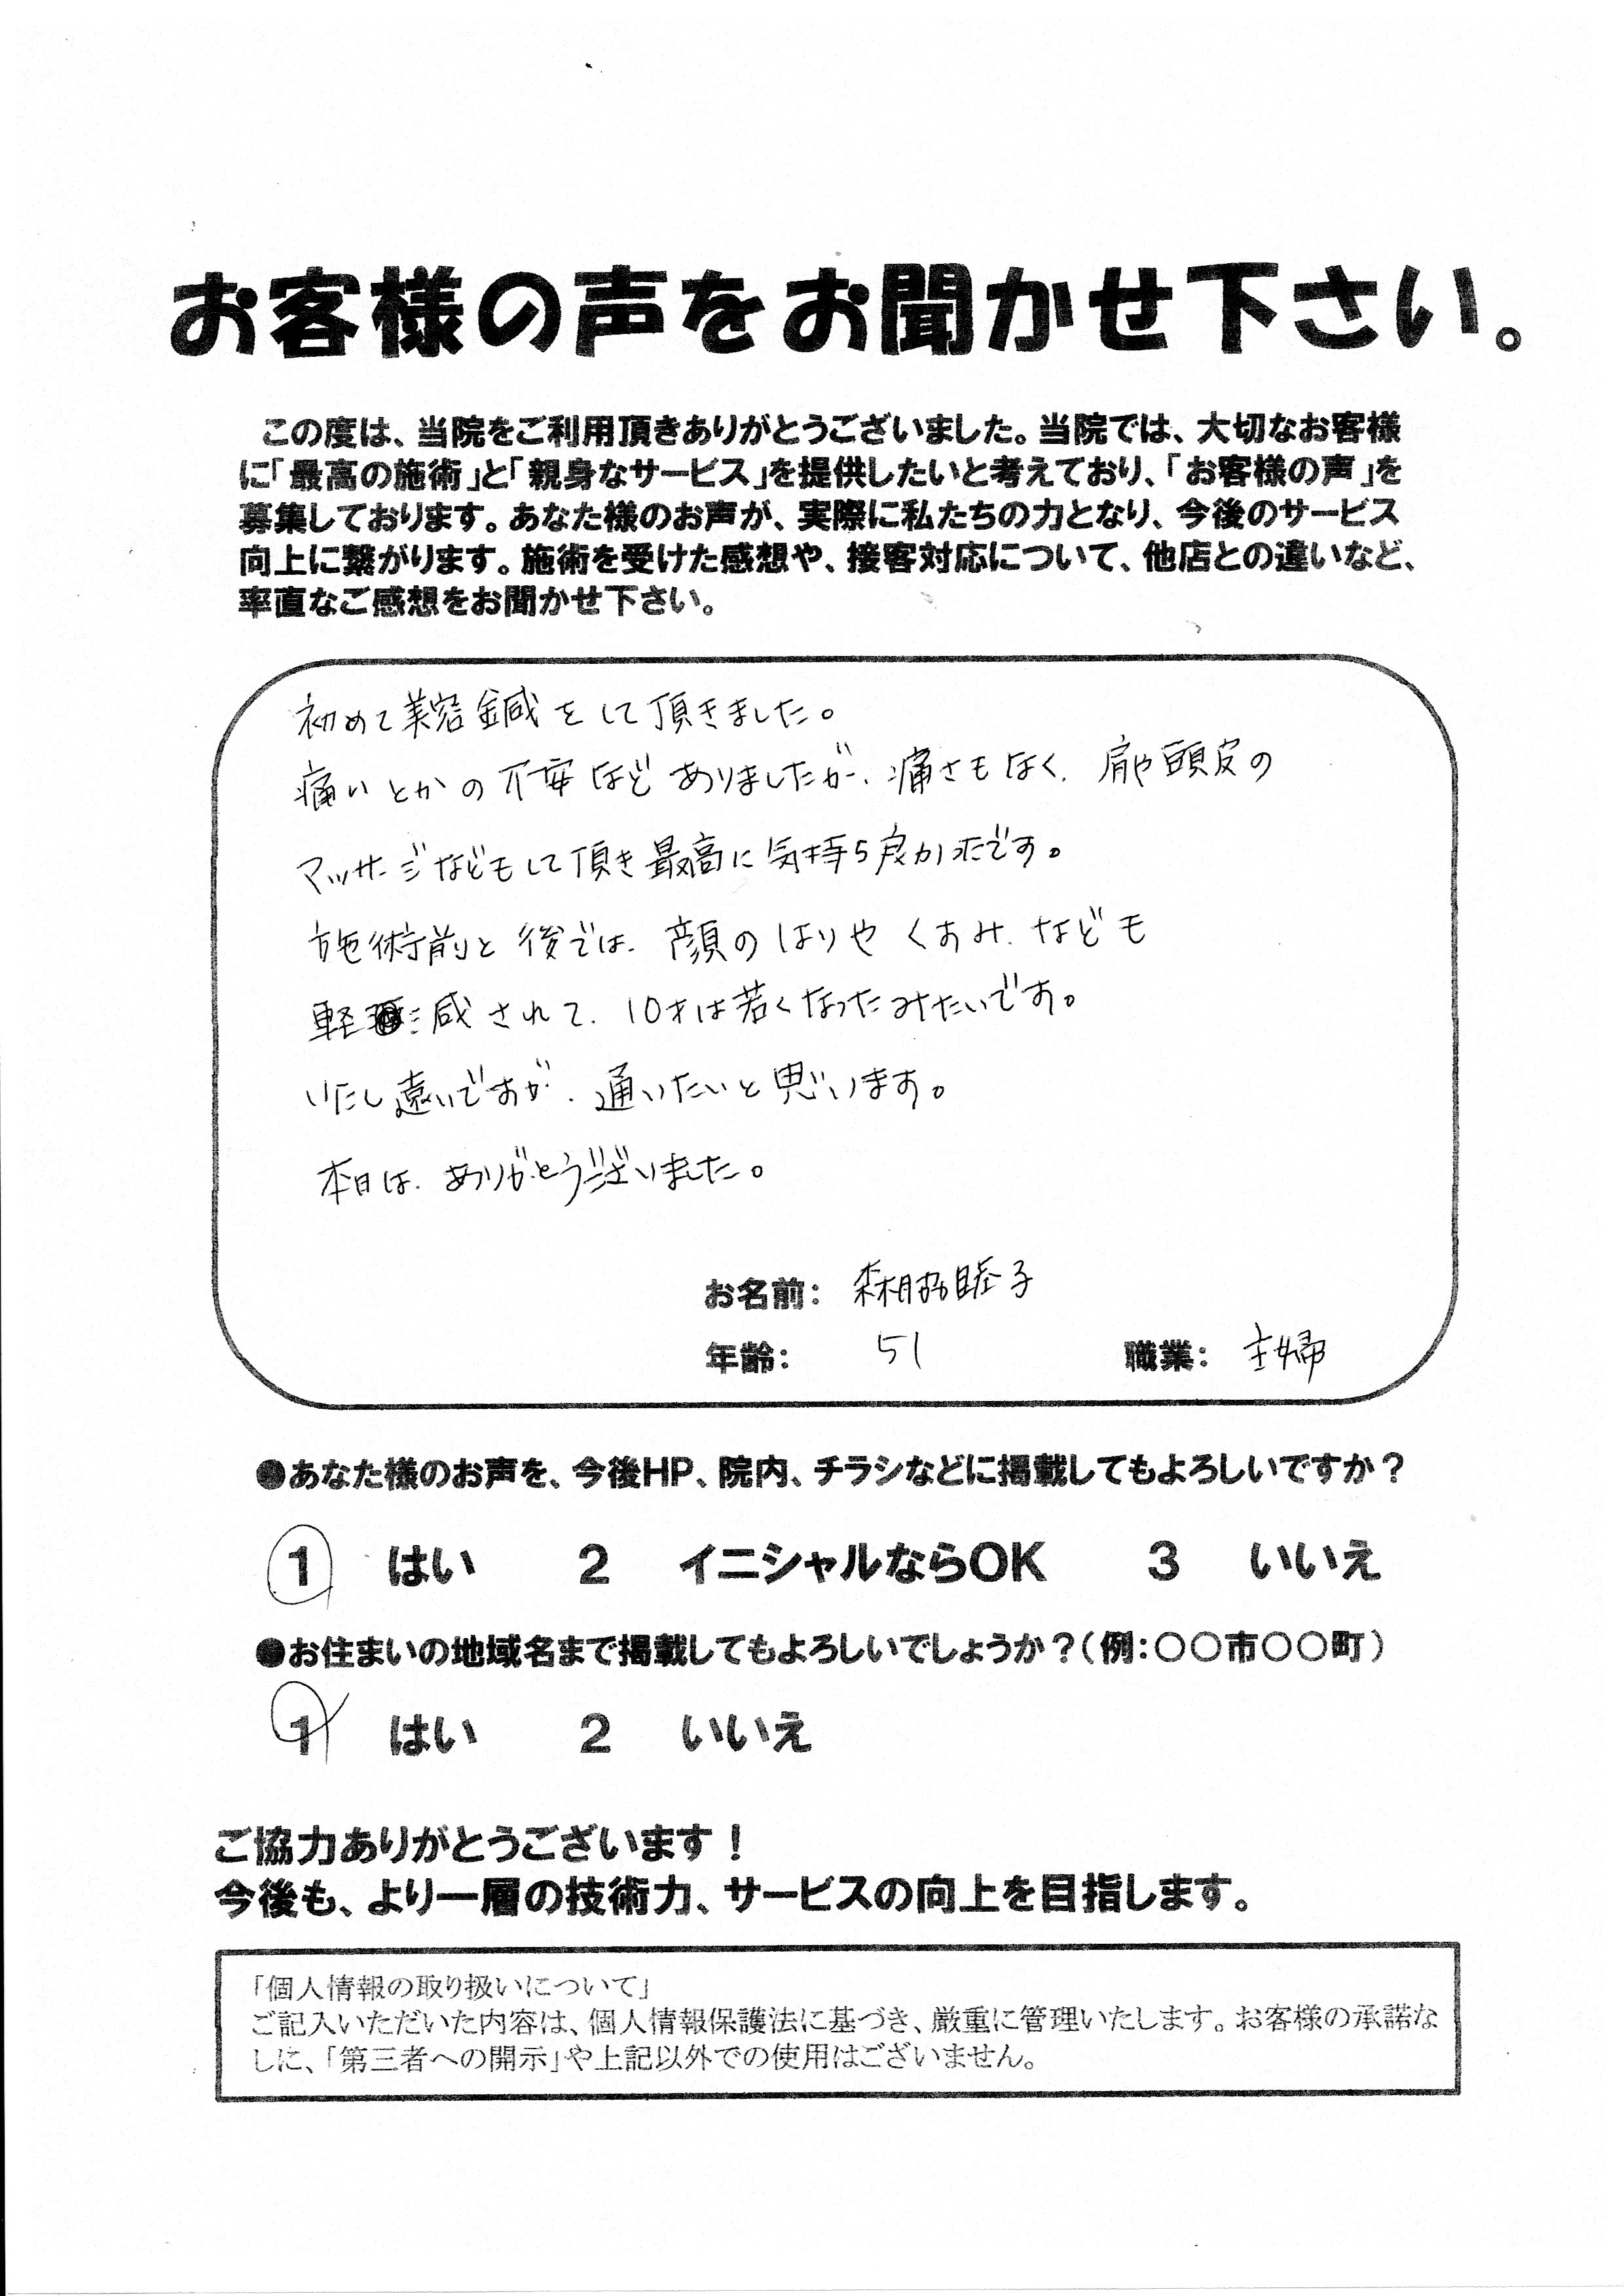 お客様の声をお聞かせ下さい。
この度は、当院をご利用頂きありがとうございました。当院では、大切なお客様
に「最高の施術」と「親身なサービス」を提供したいと考えており、「お客様の声」を
募集しております。あなた様のお声が、実際に私たちの力となり、今後のサービス
向上に繋がります。施術を受けた感想や、接客対応について、他店との違いなど、
率直なご感想をお聞かせ下さい。
初めて美容鍼をして頂きました。
痛いとかの不安などありましたが、痛さもなく、肩や頭皮の
マッサージなどもして頂き最高に気持ち良かったです。
施術前と後では、顔のはりやくすみ、なども
軽減されて、10才は若くなったみたいです。
いたし遠いですが、通いたいと思います。
本日は、ありがとうございました。
お名前: 森脇睦子
年齢: 51 職業: 主婦
●あなた様のお声を、今後HP、院内、チラシなどに掲載してもよろしいですか?
1 はい 2 イニシャルならOK 3 いいえ
●お住まいの地域名まで掲載してもよろしいでしょうか?(例:○○市○○町)
1 はい 2 いいえ
ご協力ありがとうございます!
今後も、より一層の技術力、サービスの向上を目指します。
「個人情報の取り扱いについて」
ご記入いただいた内容は、個人情報保護法に基づき、厳重に管理いたします。お客様の承諾な
しに、「第三者への開示」や上記以外での使用はございません。